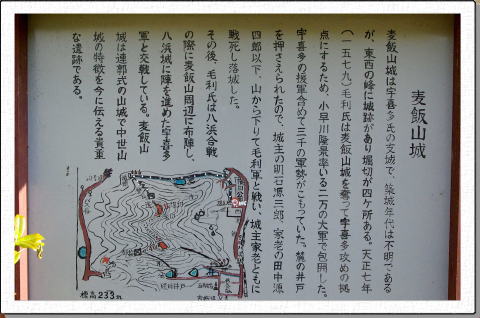 麦飯山城
麦飯山城は宇喜多氏の支城で、築城年代は不明である
が、東西の峰に城跡があり堀切が四ケ所ある。天正七年
(一五七九)毛利氏は麦飯山城を奪って宇喜多攻めの拠
点にするため、小早川隆景率いる二万の大軍で包囲した。
宇喜多の援軍含めて三千の軍勢がこもっていた。麓の井戸
を押さえられたので、城主の明石源三郎、家老の田中源
四郎以下、山から下りて毛利軍と戦い、城主家老ともに
戦死し落城した。
その後、毛利氏は八浜合戦
の際に麦飯山周辺に布陣し、
八浜城に陣を進めた宇喜多
軍と交戦している。麦飯山
城は連郭式の山城で中世山
城の特徴を今に伝える貴重
な遺跡である。
標高233m